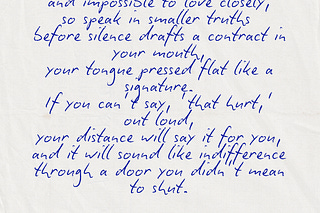 and impossible to love closely,
so speak in smaller truths
before silence drafts a contract in
your mouth,
your tongue pressed flat like a
signature.
If you can't say, 'that hurt,'
out loud,
your distance will say it for you,
and it will sound like indifference
through a door you didn't mean
to shut.